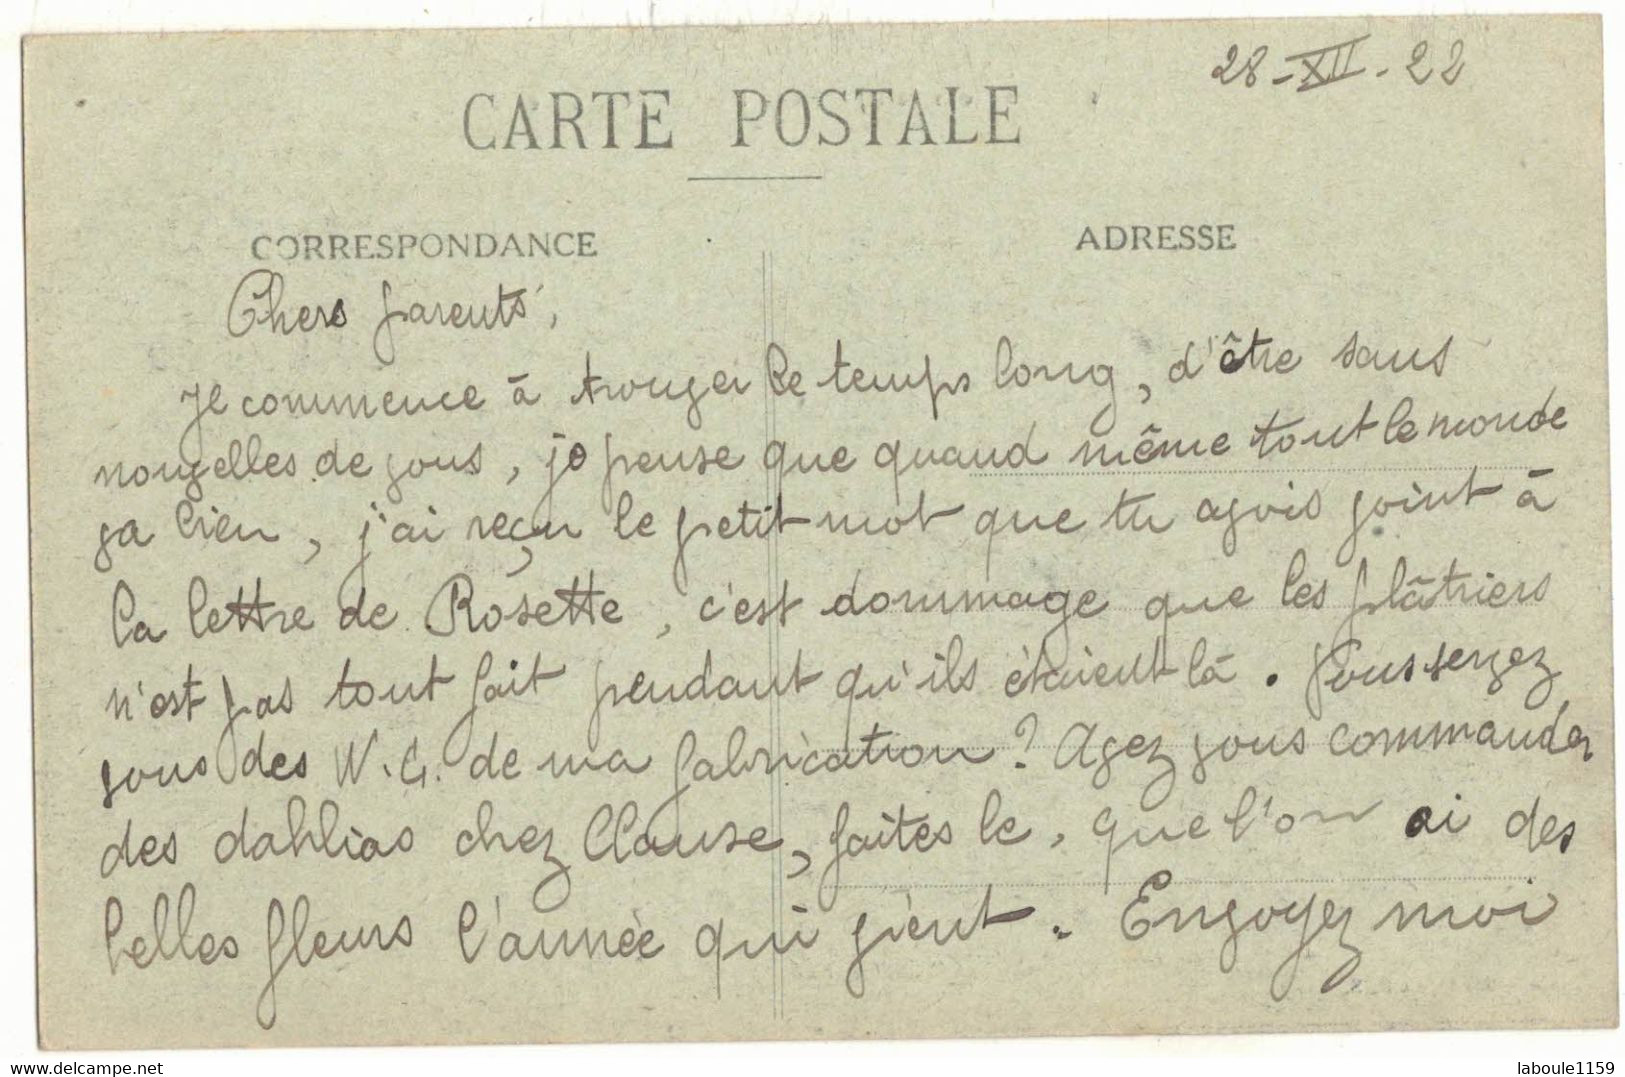 28-XII-22
CARTE POSTALE
CORRESPONDANCE
ADRESSE
Chers parents,
Je commence à trouver le temps long, d'être sans
nouvelles de vous, je pense que quand même tout le monde
va bien, j'ai reçu le petit mot que tu avais joint à
la lettre de Rosette, c'est dommage que les plâtriers
n'est pas tout fait pendant qu'ils étaient là. Vous servez
vous des W.C. de ma fabrication? Avez vous commander
des dahlias chez Clause, faites le, que l'on ai des
belles fleurs l'année qui vient. Envoyez moi
laboule1159